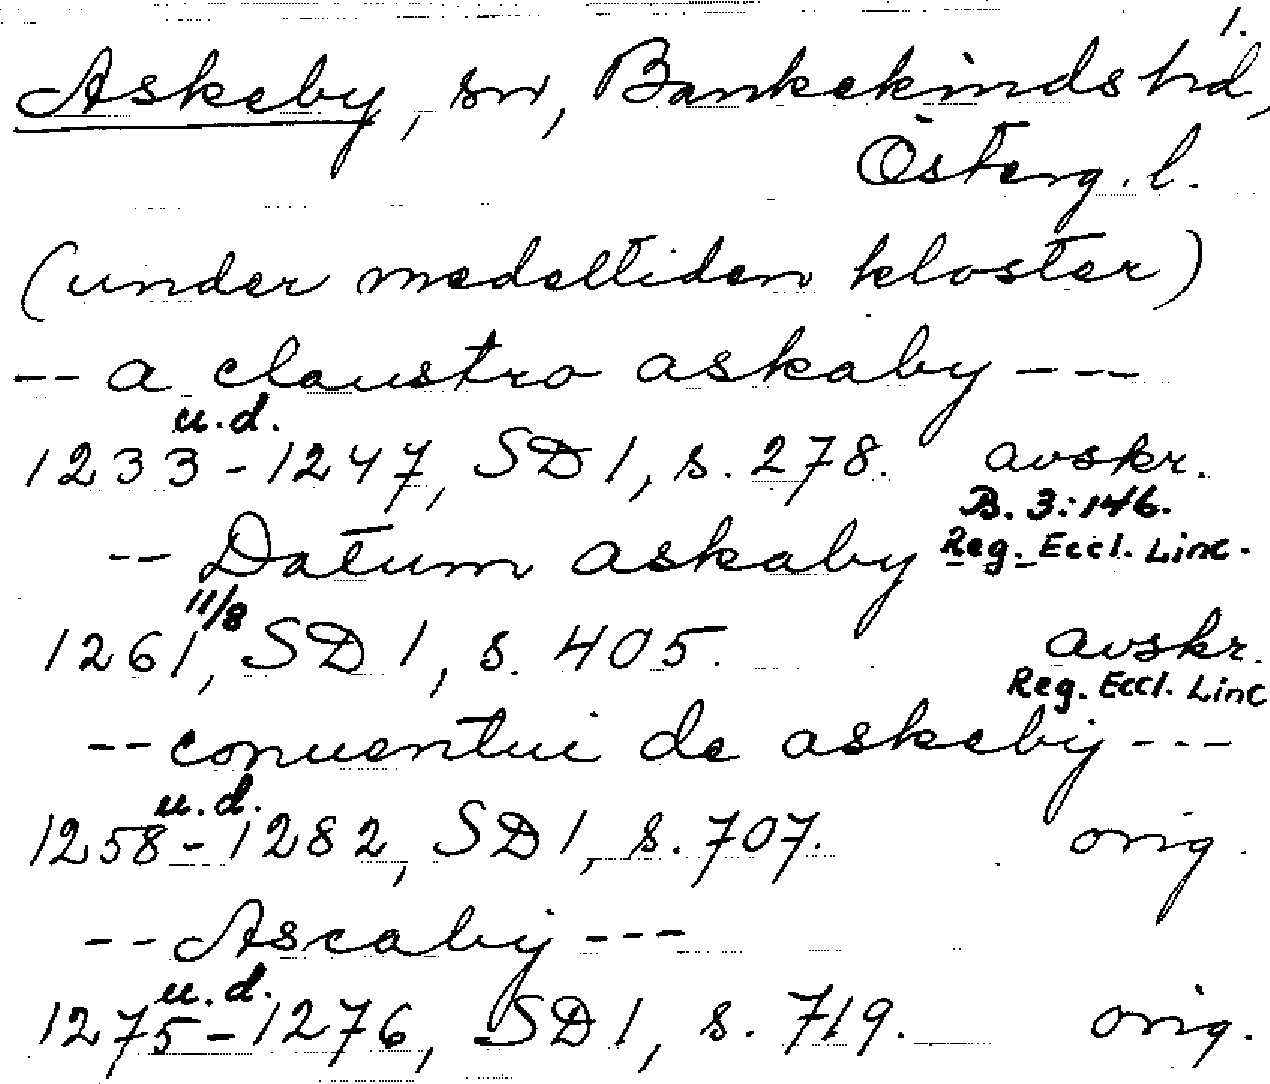 1.
Askeby, sn, Bankekinds hd,
Österg. l.
(under medeltiden kloster)
-- a claustro askaby ---
u.d.
1233-1247, SD 1, s. 278. avskr.
B. 3:146.
-- Datum askaby Reg. Eccl. Linc.
11/8
1261, SD 1, s. 405. avskr.
Reg. Eccl. Linc
-- conuentui de askebij ---
u.d.
1258-1282, SD 1, s. 707. orig.
-- Ascabij ---
u.d.
1275-1276, SD 1, s. 719. orig.